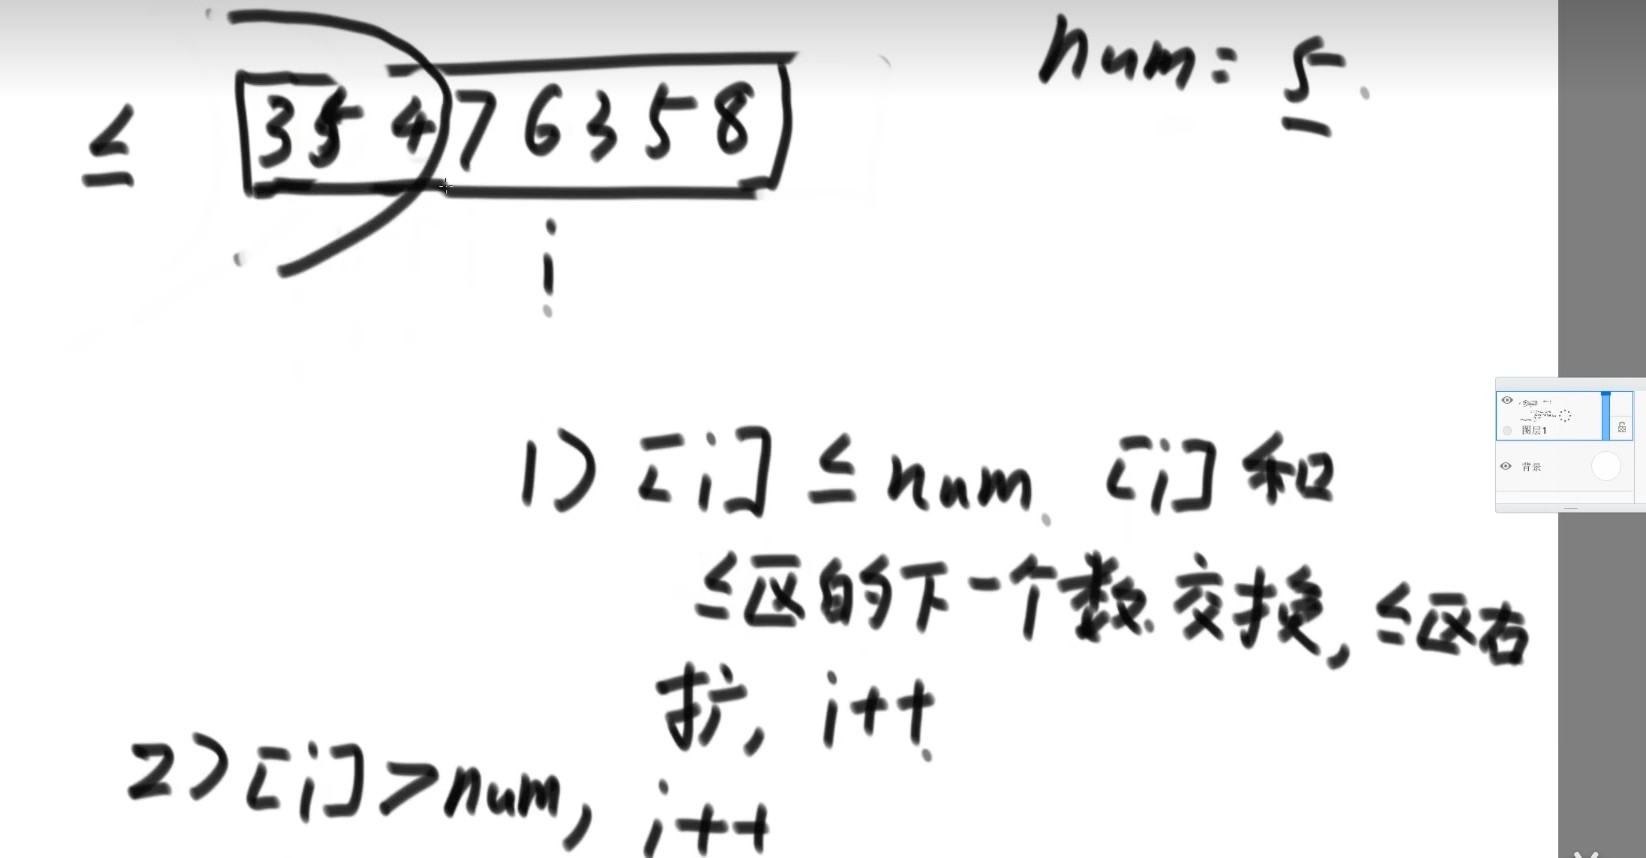 num = 5
≤ 3 5 4 7 6 3 5 8
i
1) [i] ≤ num, [i] 和
≤区的下一个数交换, ≤区右
扩, i++
2) [i] > num, i++
图层1
背景